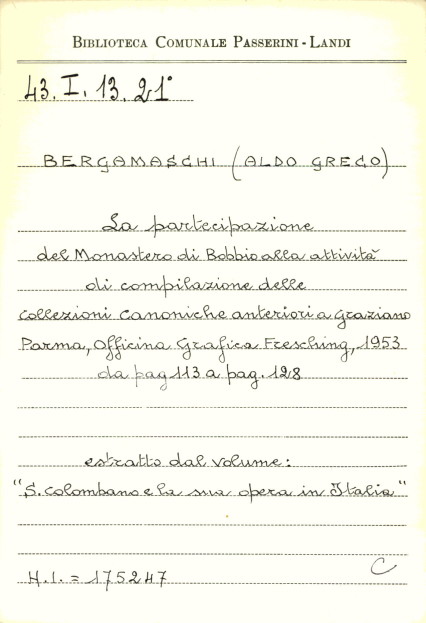 BIBLIOTECA COMUNALE PASSERINI - LANDI
43. I. 13. 21°
BERGAMASCHI (ALDO GRECO)
La partecipazione
del Monastero di Bobbio alla attività
di compilazione delle
collezioni canoniche anteriori a Graziano
Parma, Officina Grafica Fresching, 1953
da pag 113 a pag. 128
estratto dal volume:
"S. Colombano e la sua opera in Italia"
H.I. = 175247
C